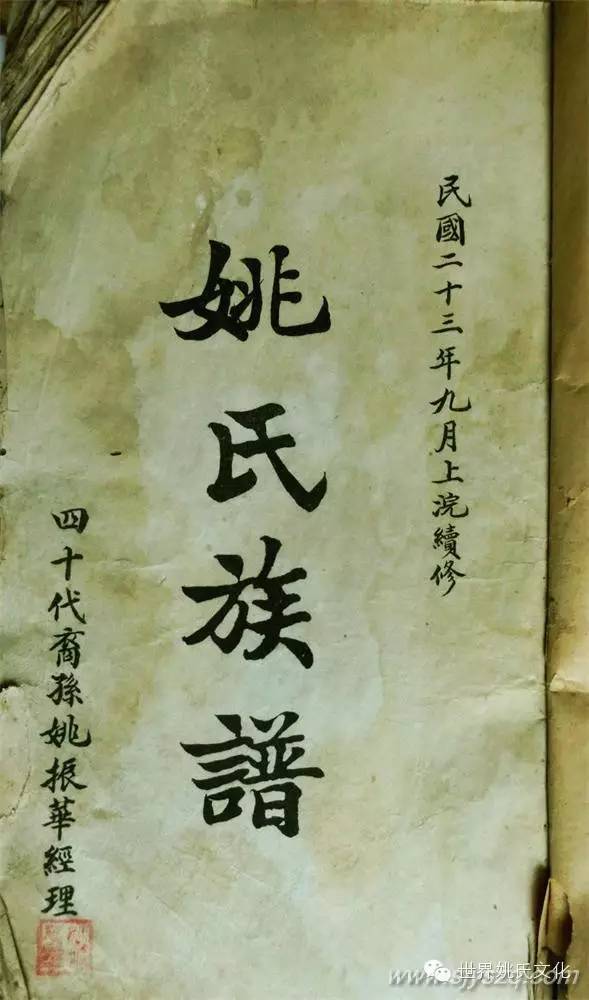 民國二十三年九月上浣續修
姚氏族譜
四十代裔孫姚振華經理
世界姚氏文化